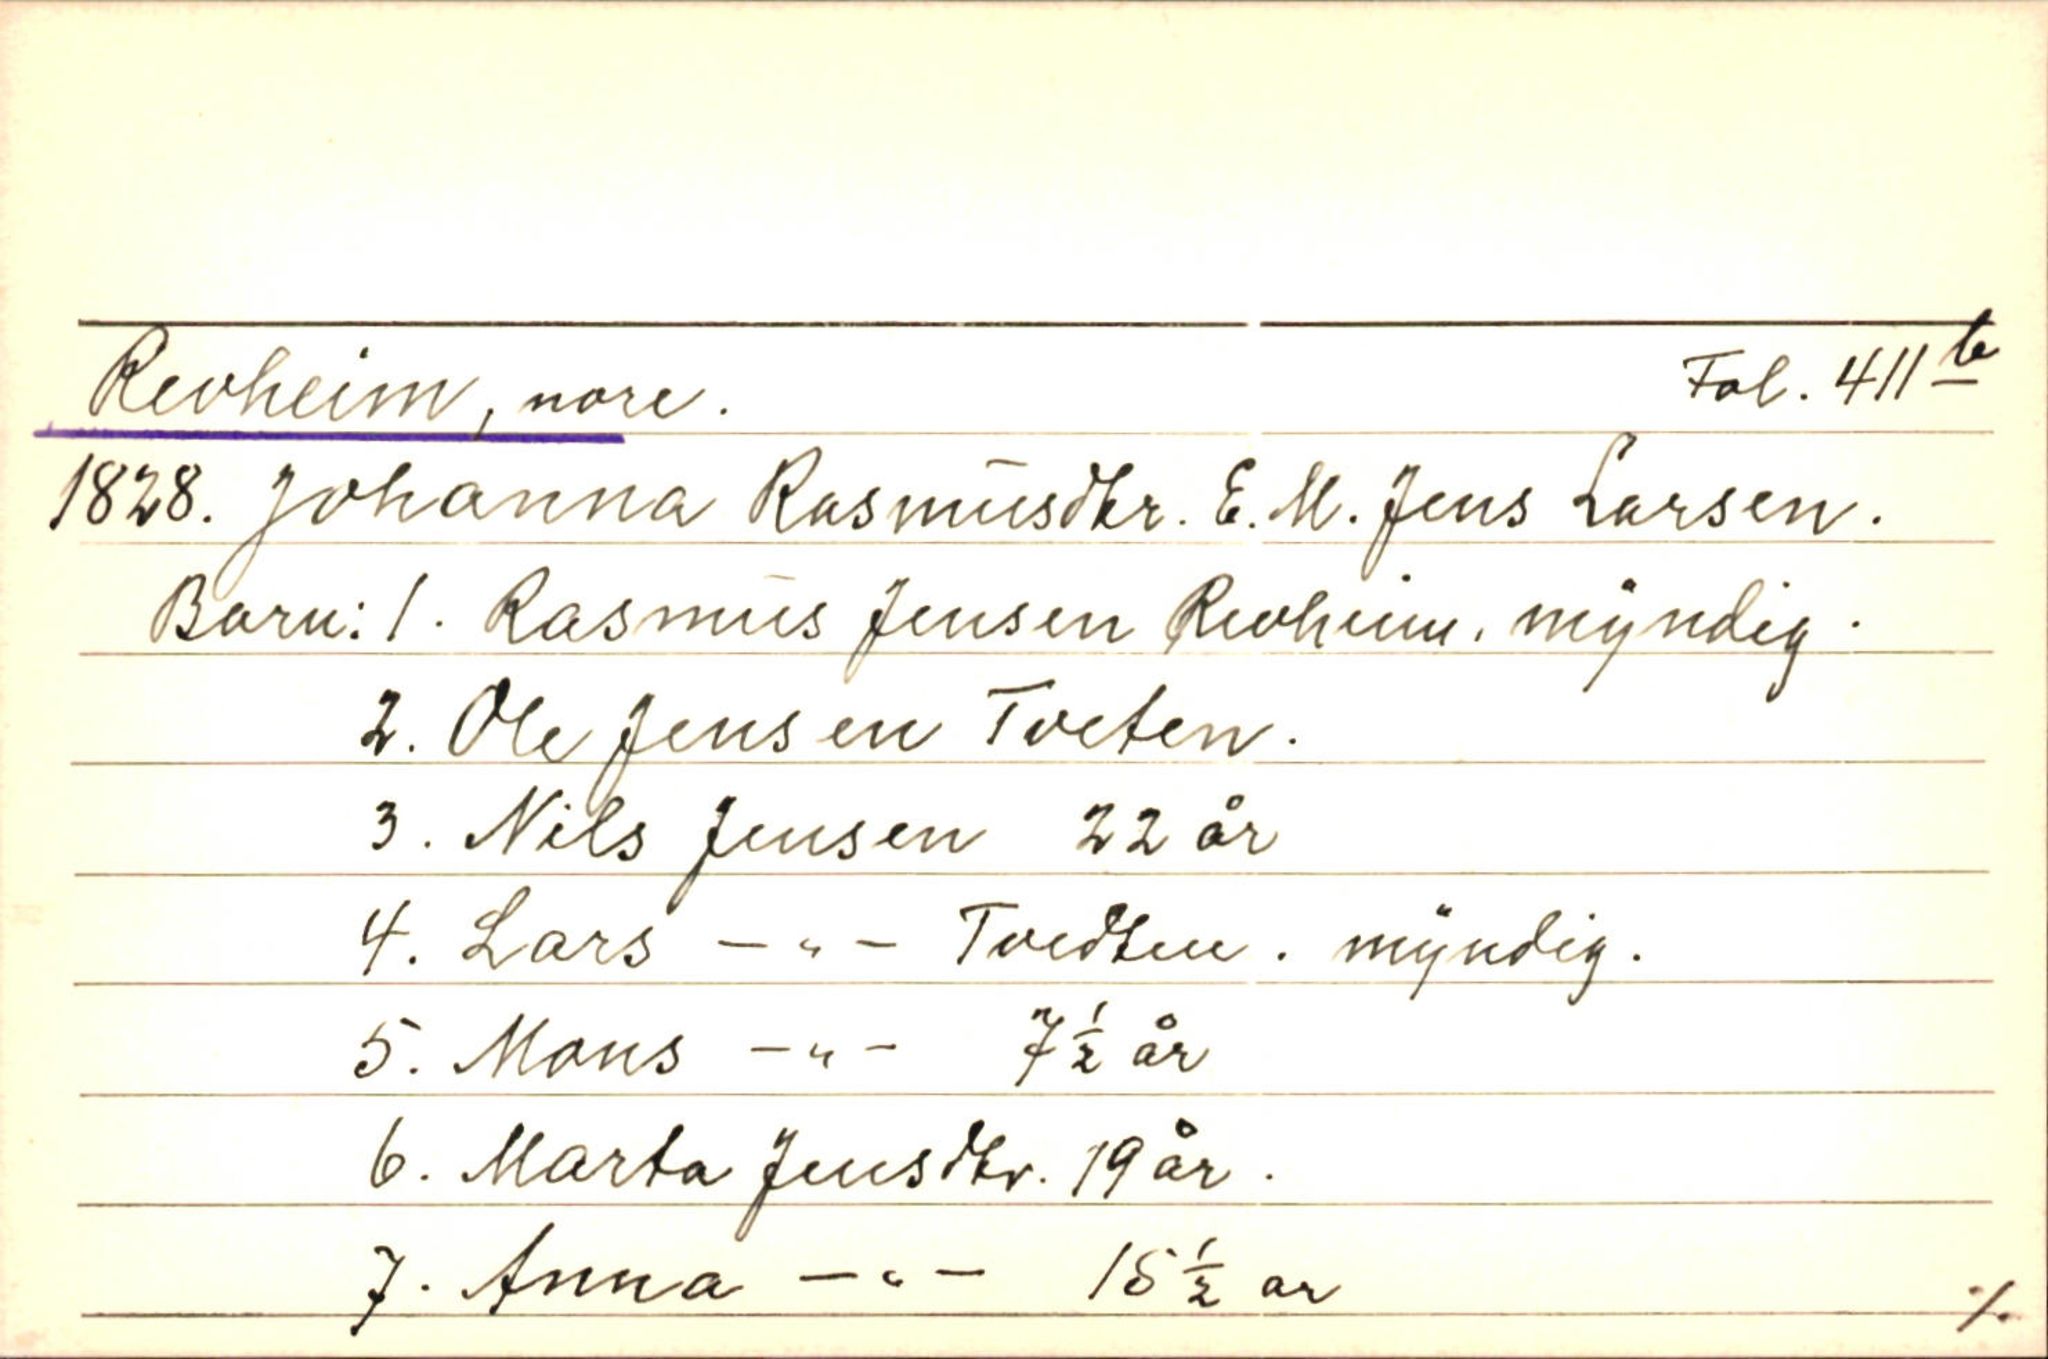 Revheim, nore. Fol. 411 b
1828. Johanna Rasmusdtr. E. M. Jens Larsen.
Barn: 1. Rasmus Jensen Revheim. mÿndig.
2. Ole Jensen Tveten.
3. Nils Jensen 22 år
4. Lars -"- Tvedten. mÿndig.
5. Mons -"- 7 ½ år
6. Marta Jensdtr. 19 år.
7. Anna -"- 15 ½ ar
./.